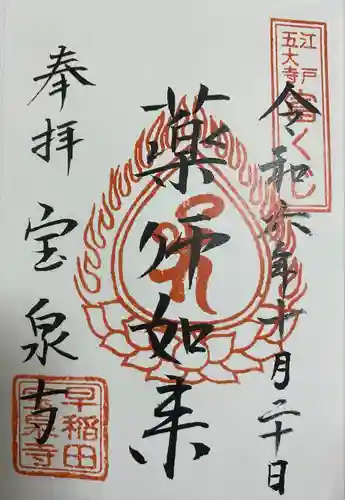 江戸
五大寺
富くじ
令和六年十月二十日
薬师如来
奉拝
宝泉寺
早稲田
宝泉寺